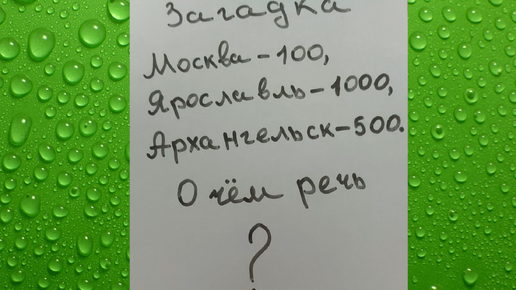 Загадка
Москва-100,
Ярославль-1000,
Архангельск-500.
О чём речь
?